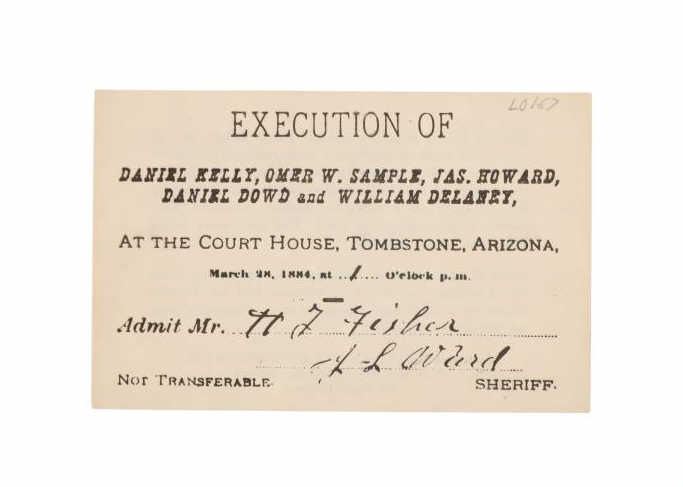 LO167
EXECUTION OF
DANIEL KELLY, OMER W. SAMPLE, JAS. HOWARD,
DANIEL DOWD and WILLIAM DELANEY,
AT THE COURT HOUSE, TOMBSTONE, ARIZONA,
March 28, 1884, at ..1.... O'clock p. m.
Admit Mr. H F Fisher
J L Ward
NOT TRANSFERABLE. SHERIFF.